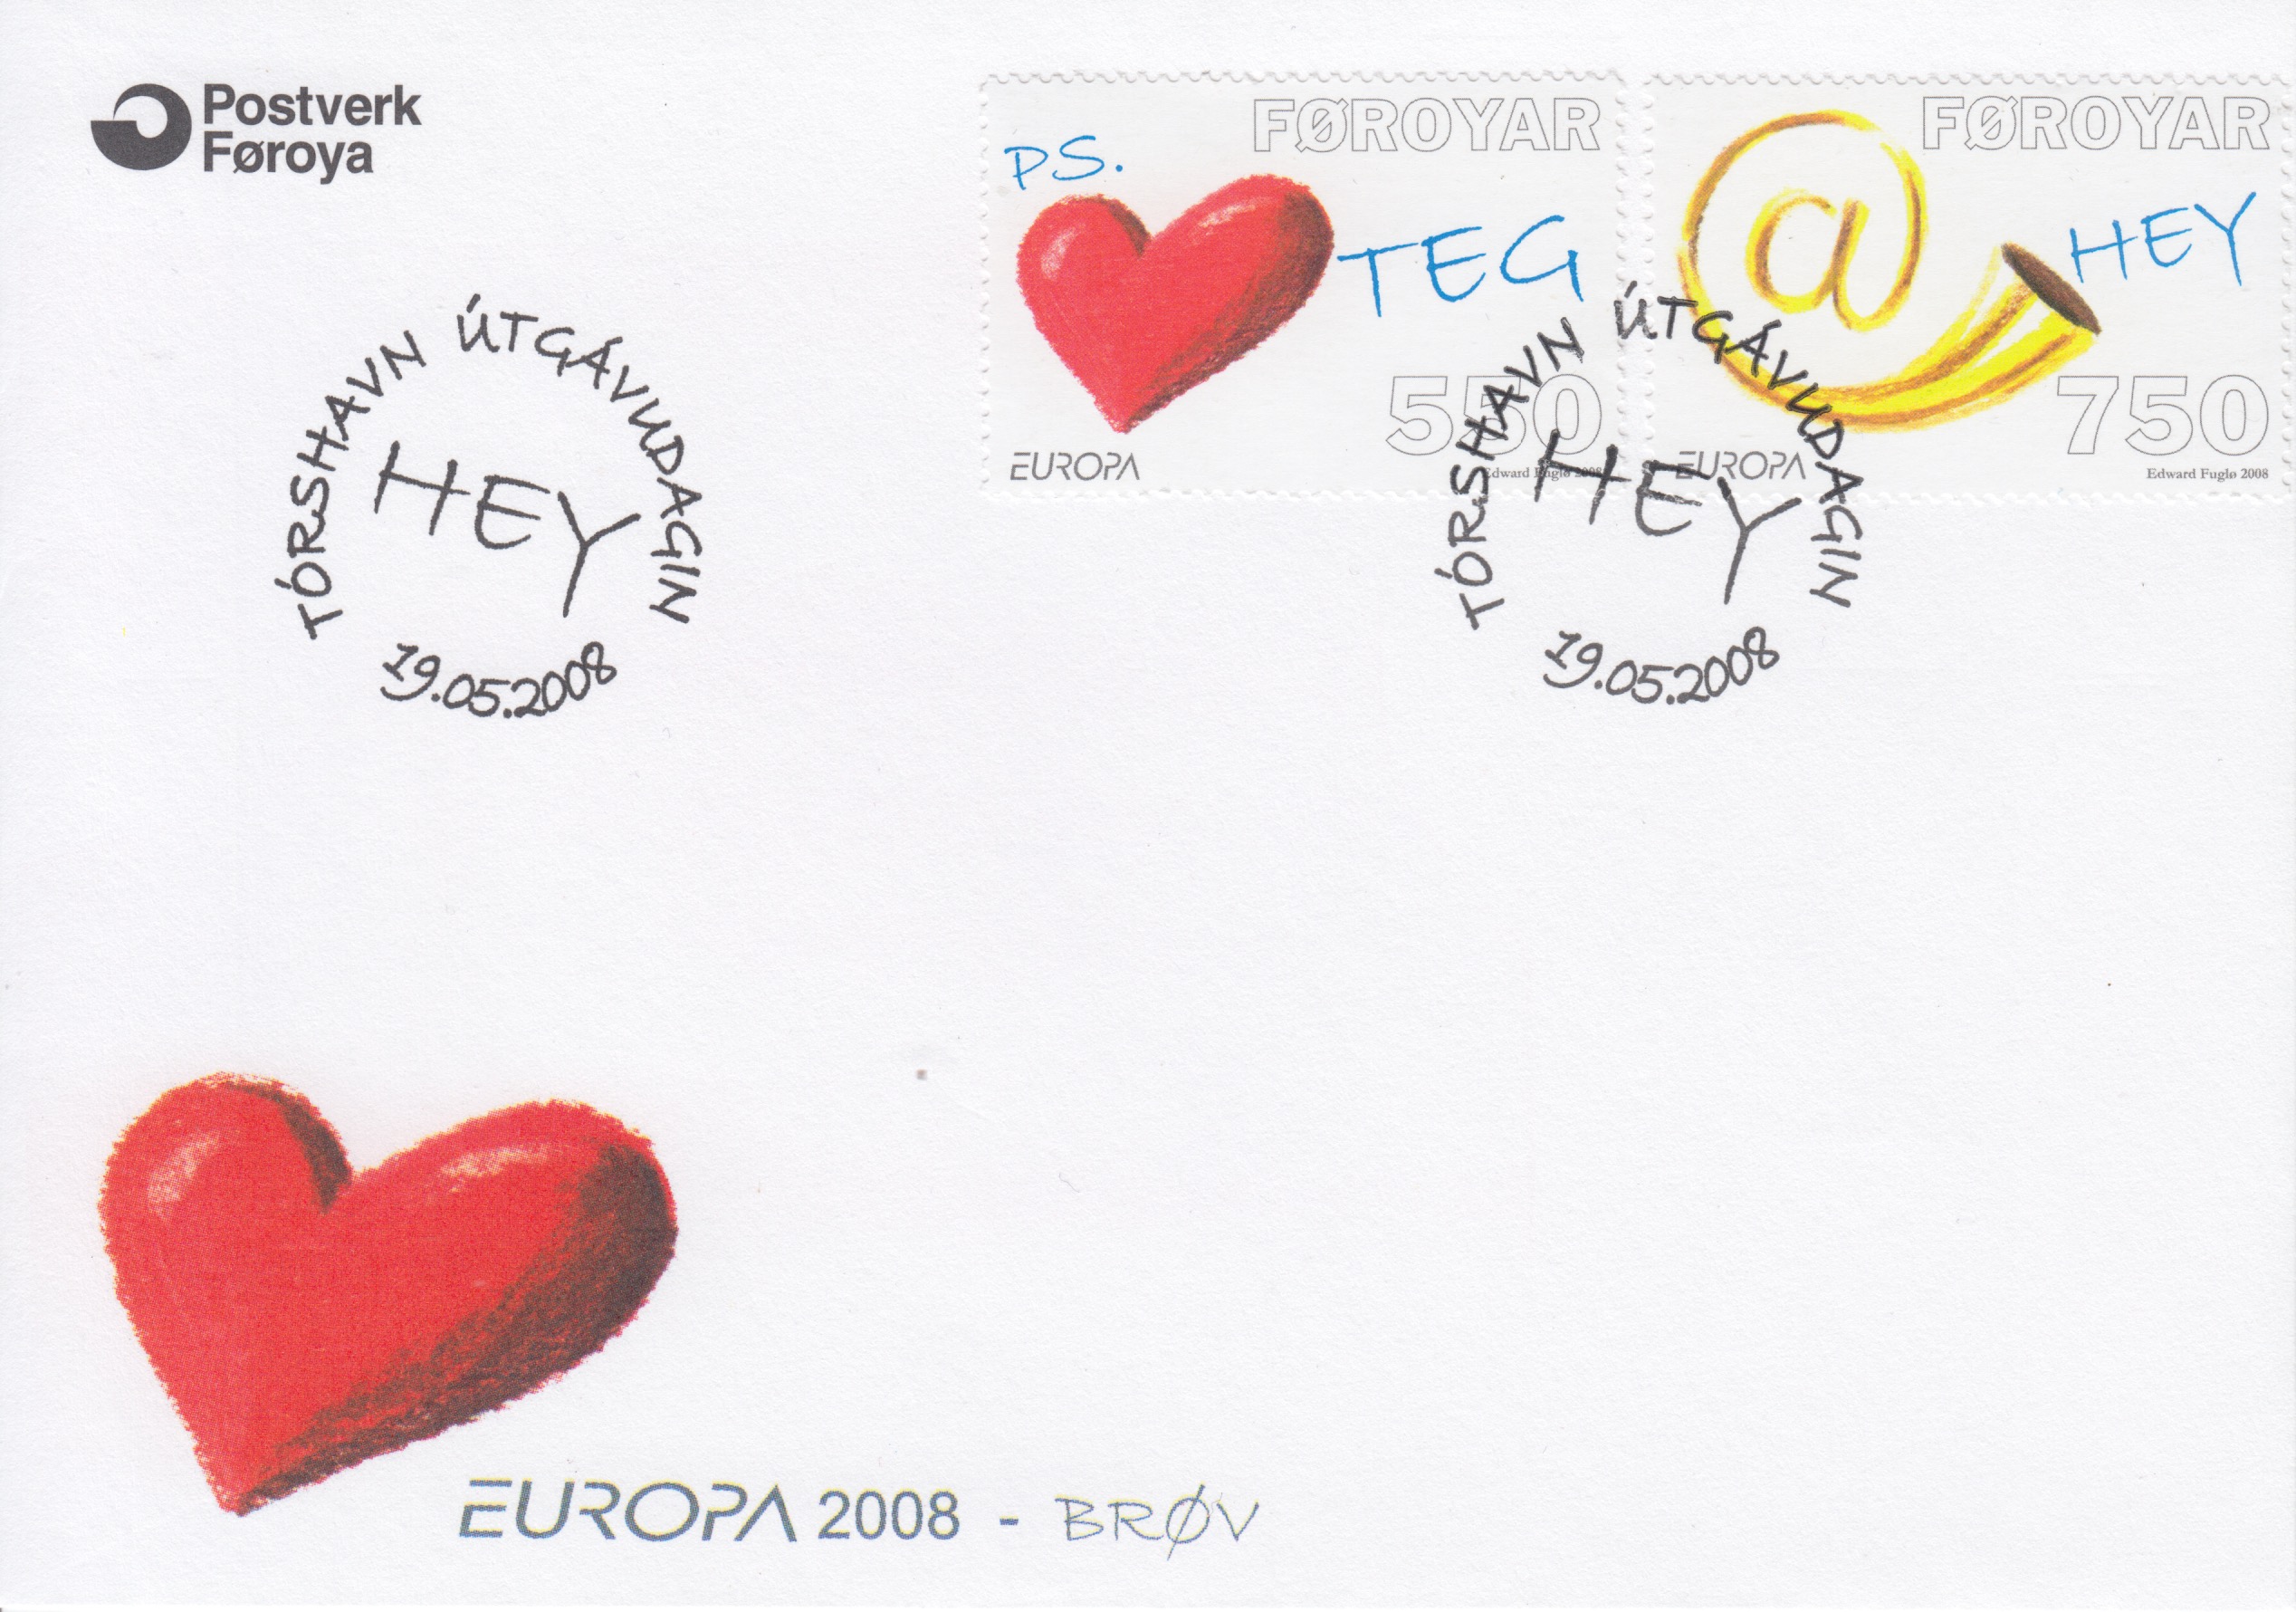 Postverk
Føroya
FØROYAR
PS.
TEG
550
EUROPA
Edward Fuglø 2008
FØROYAR
@
HEY
750
EUROPA
Edward Fuglø 2008
TÓRSHAVN ÚTGÁVUDAGIN
HEY
19.05.2008
TÓRSHAVN ÚTGÁVUDAGIN
HEY
19.05.2008
EUROPA 2008 - BRØV